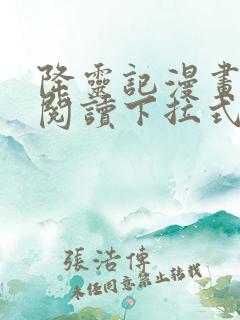 降靈記漫畫
閱讀下拉式
張浩傳
未經同意禁止轉載